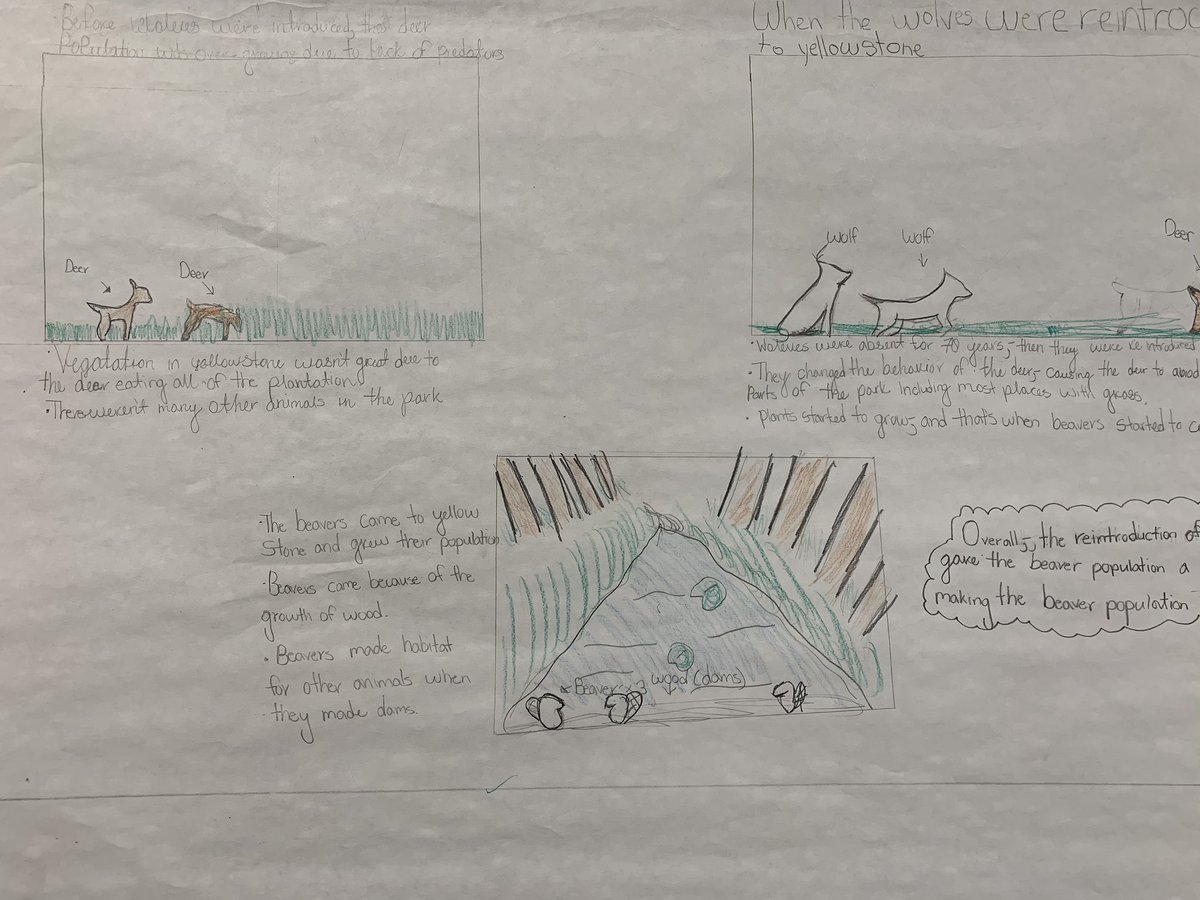 Before wolevies were introduced, that deer
Population was over-growing due to lack of predators
Deer
Deer
• Vegatation in yellowstone wasn't great due to
the deer eating all of the plantation
• There weren't many other animals in the park
When the wolves were reintroc
to yellowstone
Wolf
Wolf
Deer
• Wolevies were absent for 70 years, then they were re introduced
• They changed the behavior of the deer, causing the deir to
Parts of the park including most places with grass.
• plants started to grow, and that's when beavers started to
• The beavers came to yellow
Stone and grew their population
• Beavers came because of the
growth of wood.
• Beavers made habitat
for other animals when
they made dams.
Beavers x3
wood (dams)
Overall, the reintroduction of
gave the beaver population a
making the beaver population